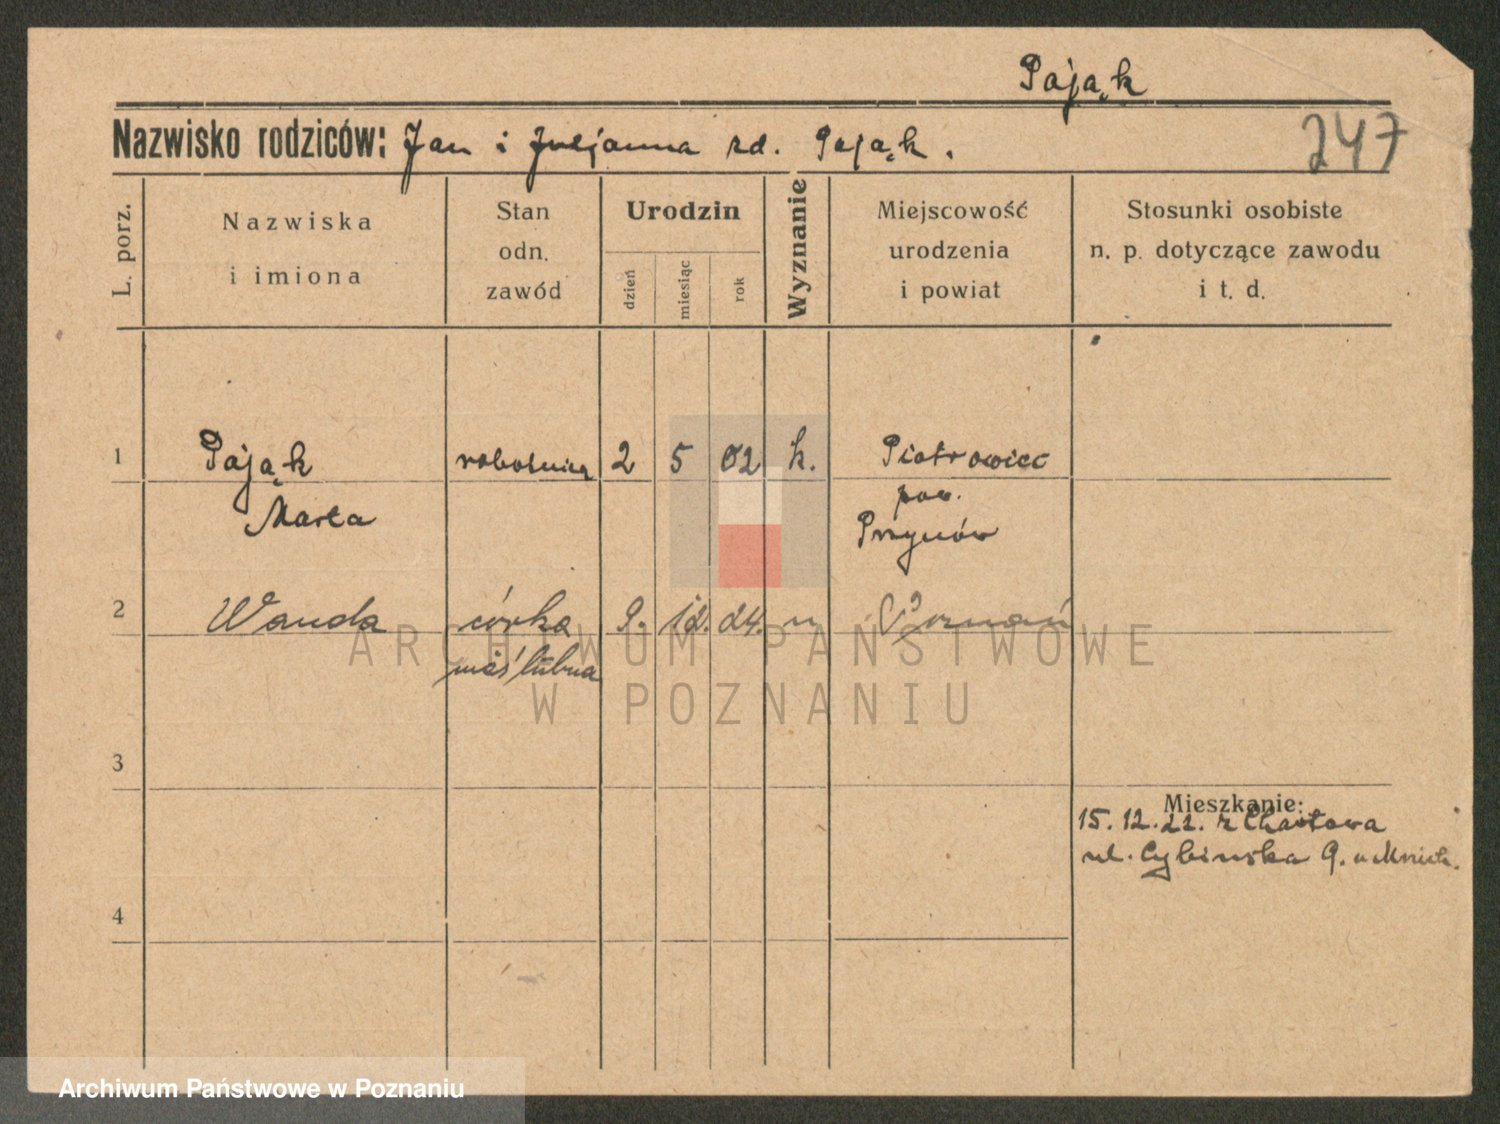 Pająk
Nazwisko rodziców: Jan i Juljanna zd. Pająk.
247
L. porz.
Nazwiska
i imiona
Stan
odn.
zawód
Urodzin
dzień
miesiąc
rok
Wyznanie
Miejscowość
urodzenia
i powiat
Stosunki osobiste
n. p. dotyczące zawodu
i t. d.
1 Pająk robotnica 2 5 02 k. Piotrowiec
Marta pow.
2 Wanda córka 9. 12. 24. " Poznań
nieślubna
3
Mieszkanie:
15. 12. 22. z Chartowa
ul. Cybińska 9.
4
ARCHIWUM PAŃSTWOWE
W POZNANIU
Archiwum Państwowe w Poznaniu